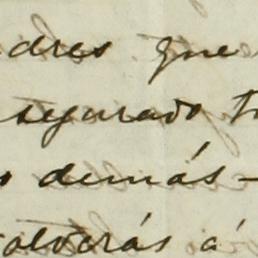 dres que
segurado t
demás-
volverás á